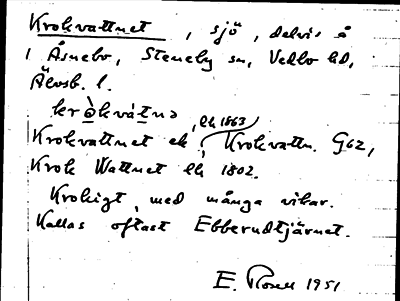 Krokvattnet, sjö, delvis å
1 Åsnebo, Steneby sn, Vedbo hd,
Älvsb. l.
kròkvàtnə
Krokvattnet ek, lh 1863, Krokvattn. G62,
Krok Wattnet lh 1802.
Krokigt, med många vikar.
Kallas oftast Ebberudtjärnet.
E. 1951